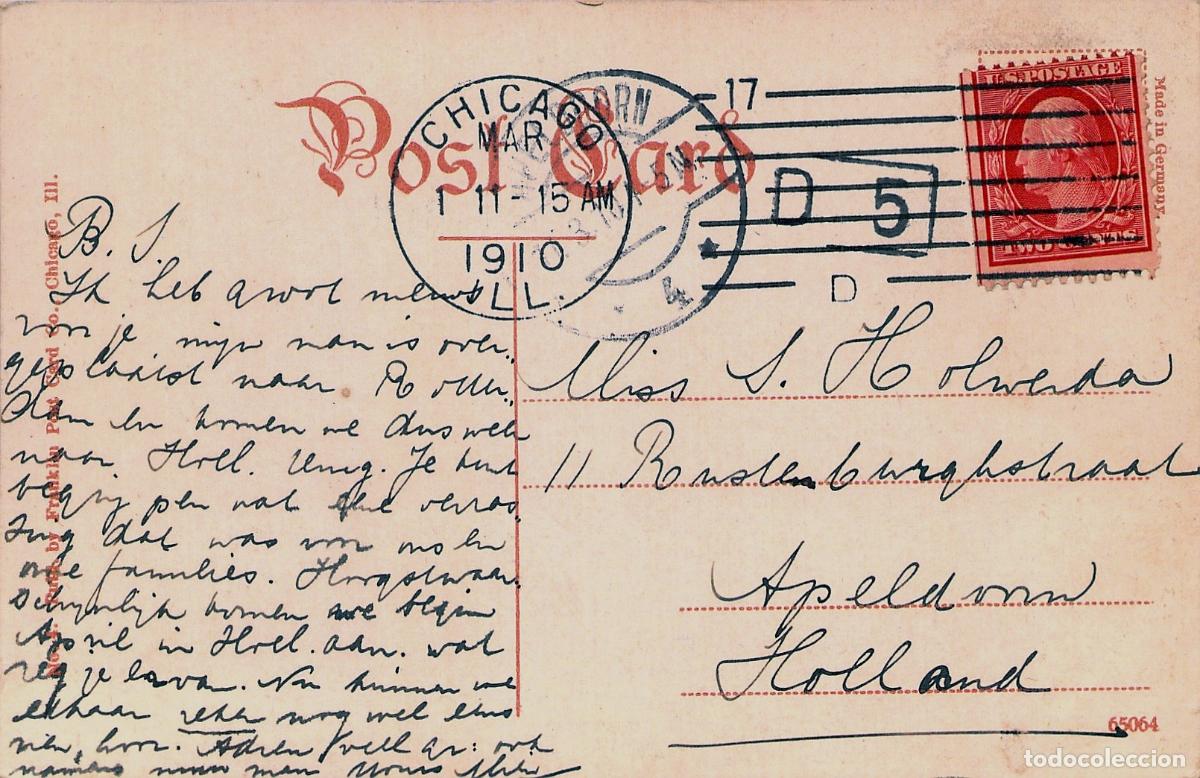 Post Card
CHICAGO
MAR
1 11-15 AM
1910
ILL.
ORN
4
17
D 5
D
U.S. POSTAGE
TWO CENTS
Made in Germany.
Franklin Post Card Co. Chicago, Ill.
B. S.
Ik heb groot nieuws
voor je mijn man is over-
geplaatst naar Rotter-
dam en komen we dus weer
naar Holl. terug. Je kunt
begrijpen wat een verras-
sing dat was voor ons en
onze families. Hoogstwaar-
schijnlijk komen we begin
April in Holl. aan. wat
zeg je ervan. Nu kunnen we
elkaar zeker nog wel eens
zien, hoor. Adieu veel gr: ook
namens mijn man yours
Miss S. Holwerda
11 Rustenburghstraat
Apeldoorn
Holland
65064
todocoleccion